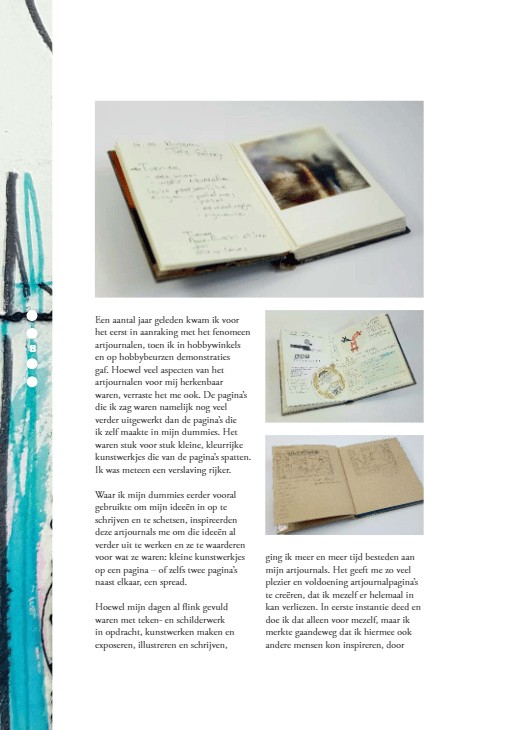 8
Een aantal jaar geleden kwam ik voor
het eerst in aanraking met het fenomeen
artjournalen, toen ik in hobbywinkels
en op hobbybeurzen demonstraties
gaf. Hoewel veel aspecten van het
artjournalen voor mij herkenbaar
waren, verraste het me ook. De pagina's
die ik zag waren namelijk nog veel
verder uitgewerkt dan de pagina's die
ik zelf maakte in mijn dummies. Het
waren stuk voor stuk kleine, kleurrijke
kunstwerkjes die van de pagina's spatten.
Ik was meteen een verslaving rijker.
Waar ik mijn dummies eerder vooral
gebruikte om mijn ideeën in op te
schrijven en te schetsen, inspireerden
deze artjournals me om die ideeën al
verder uit te werken en ze te waarderen
voor wat ze waren: kleine kunstwerkjes
op een pagina – of zelfs twee pagina's
naast elkaar, een spread.
Hoewel mijn dagen al flink gevuld
waren met teken- en schilderwerk
in opdracht, kunstwerken maken en
exposeren, illustreren en schrijven,
ging ik meer en meer tijd besteden aan
mijn artjournals. Het geeft me zo veel
plezier en voldoening artjournalpagina's
te creëren, dat ik mezelf er helemaal in
kan verliezen. In eerste instantie deed en
doe ik dat alleen voor mezelf, maar ik
merkte gaandeweg dat ik hiermee ook
andere mensen kon inspireren, door